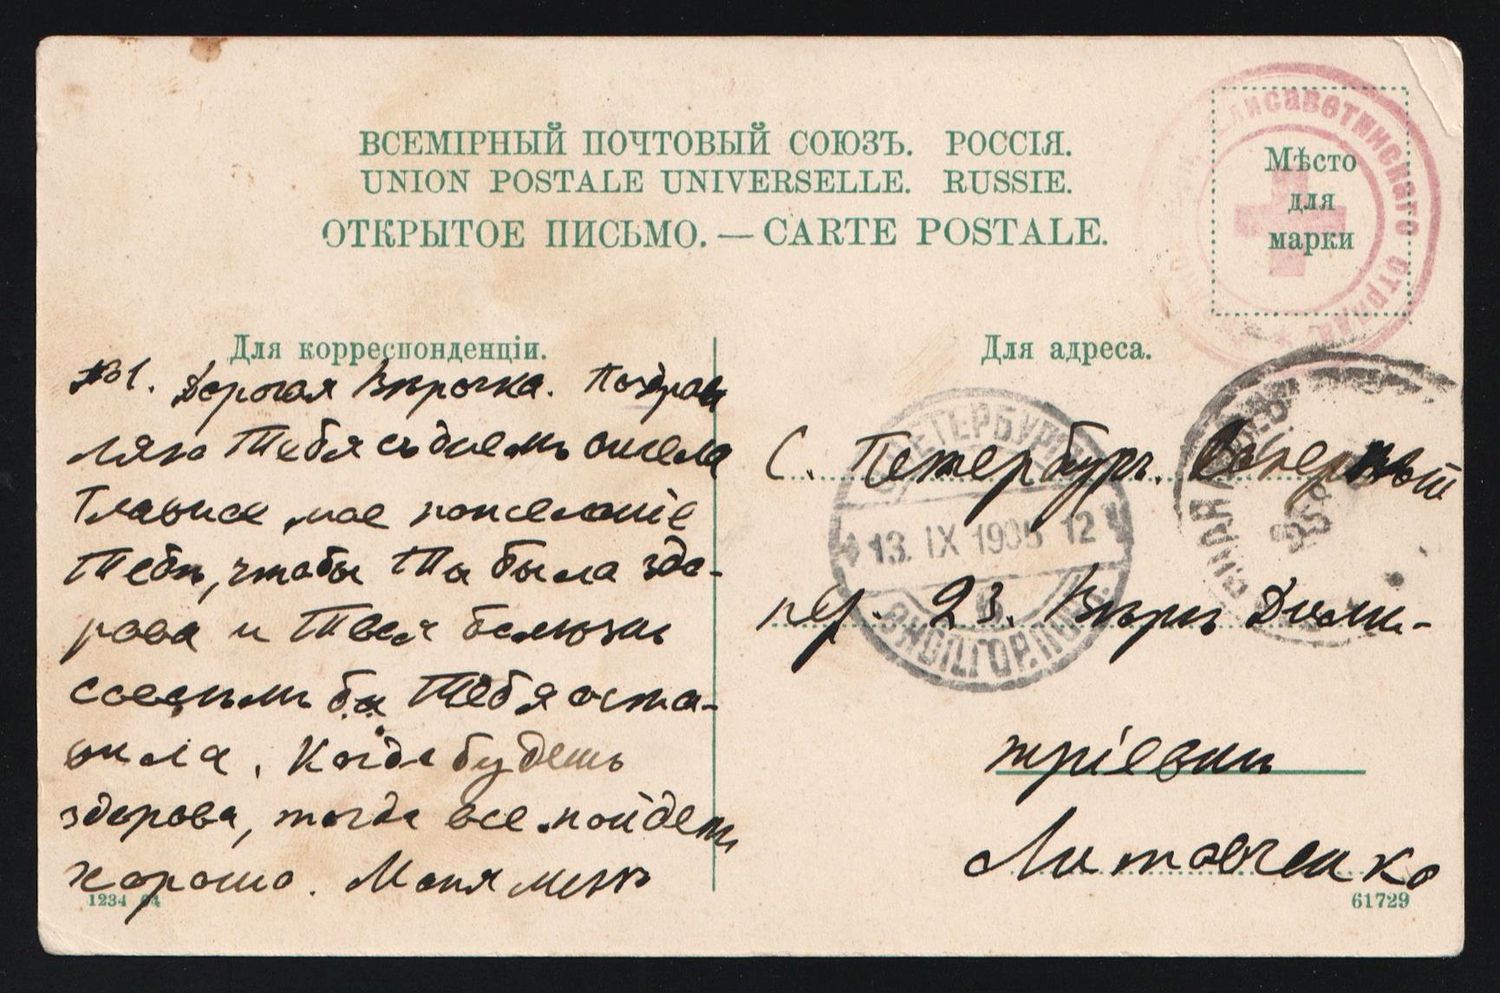 ВСЕМІРНЫЙ ПОЧТОВЫЙ СОЮЗЪ. РОССІЯ.
UNION POSTALE UNIVERSELLE. RUSSIE.
ОТКРЫТОЕ ПИСЬМО. — CARTE POSTALE.
Елисаветинскаго отряда
Мѣсто
для
марки
Для корреспонденціи.
№1. Дорогая Вѣрочка. Поздрав
ляю Тебя съ днемъ ангела
Главное мое пожеланіе
Тебѣ, чтобы Ты была здо-
рова и Твоя болѣзнь
совсѣмъ бы Тебя оста-
вила. Когда будешь
здорова, тогда все пойдетъ
хорошо. Маня мнѣ
1234 04
Для адреса.
С. Петербургъ. Озерный
пер. 23. Вѣрѣ Дими-
тріевнѣ
Литовченко
61729
С.ПЕТЕРБУРГЪ
13. IX 1905 12
6
ЭКСПЕД.ГОР.ПОЧТ.